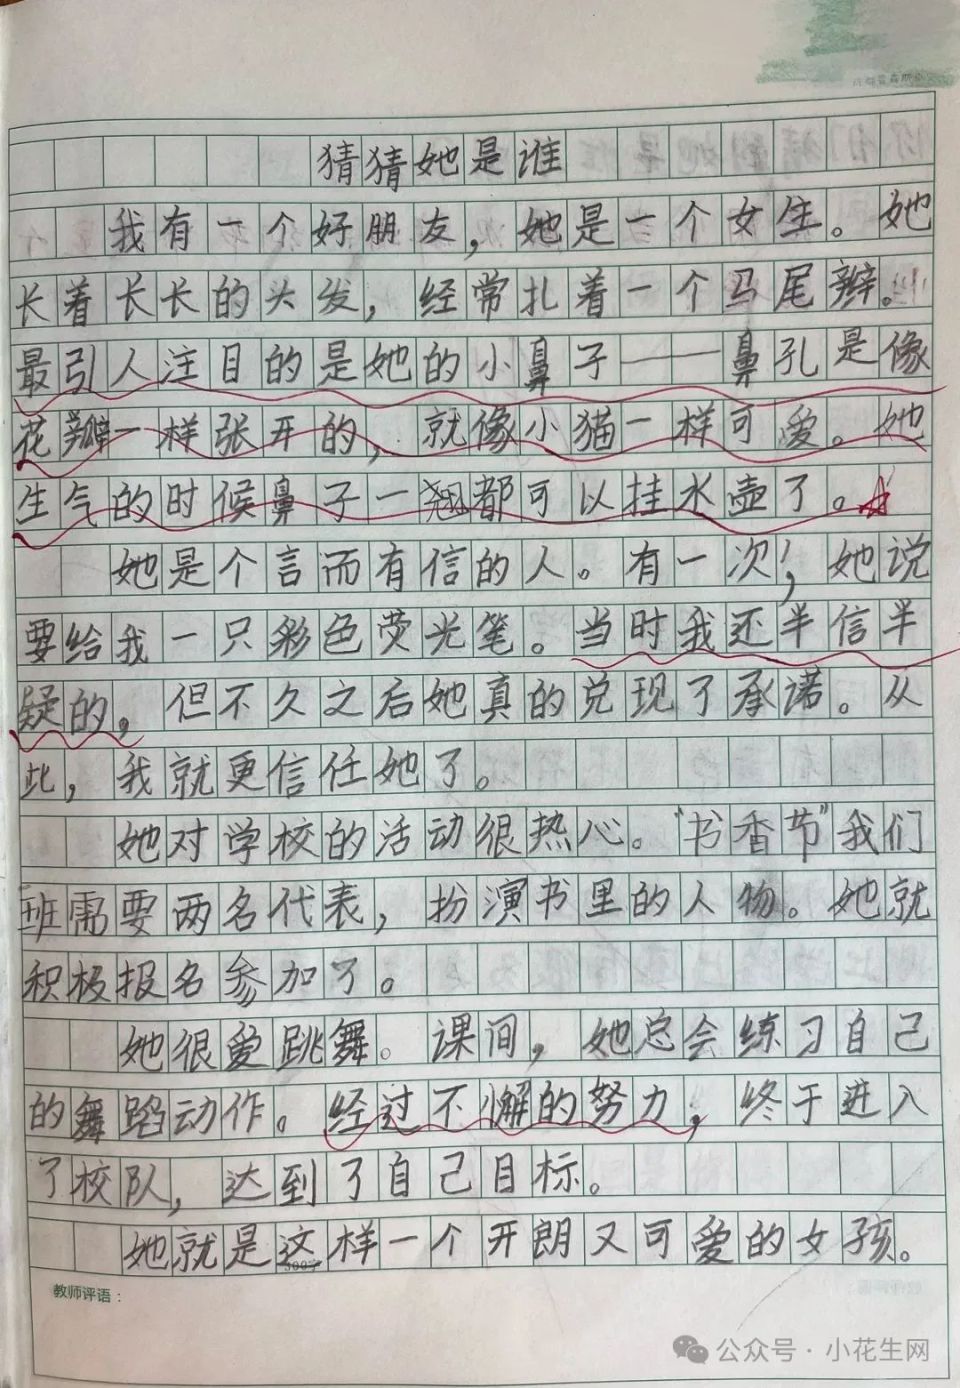 猜猜她是谁
我有一个好朋友，她是一个女生。她
长着长长的头发，经常扎着一个马尾辫。
最引人注目的是她的小鼻子——鼻孔是像
花瓣一样张开的，就像小猫一样可爱。她
生气的时候鼻子一翘都可以挂水壶了。
她是个言而有信的人。有一次，她说
要给我一只彩色荧光笔。当时我还半信半
疑的，但不久之后她真的兑现了承诺。从
此，我就更信任她了。
她对学校的活动很热心。“书香节”我们
班需要两名代表，扮演书里的人物。她就
积极报名参加了。
她很爱跳舞。课间，她总会练习自己
的舞蹈动作。经过不懈的努力，终于进入
了校队，达到了自己目标。
她就是这样一个开朗又可爱的女孩。
教师评语：
公众号·小花生网